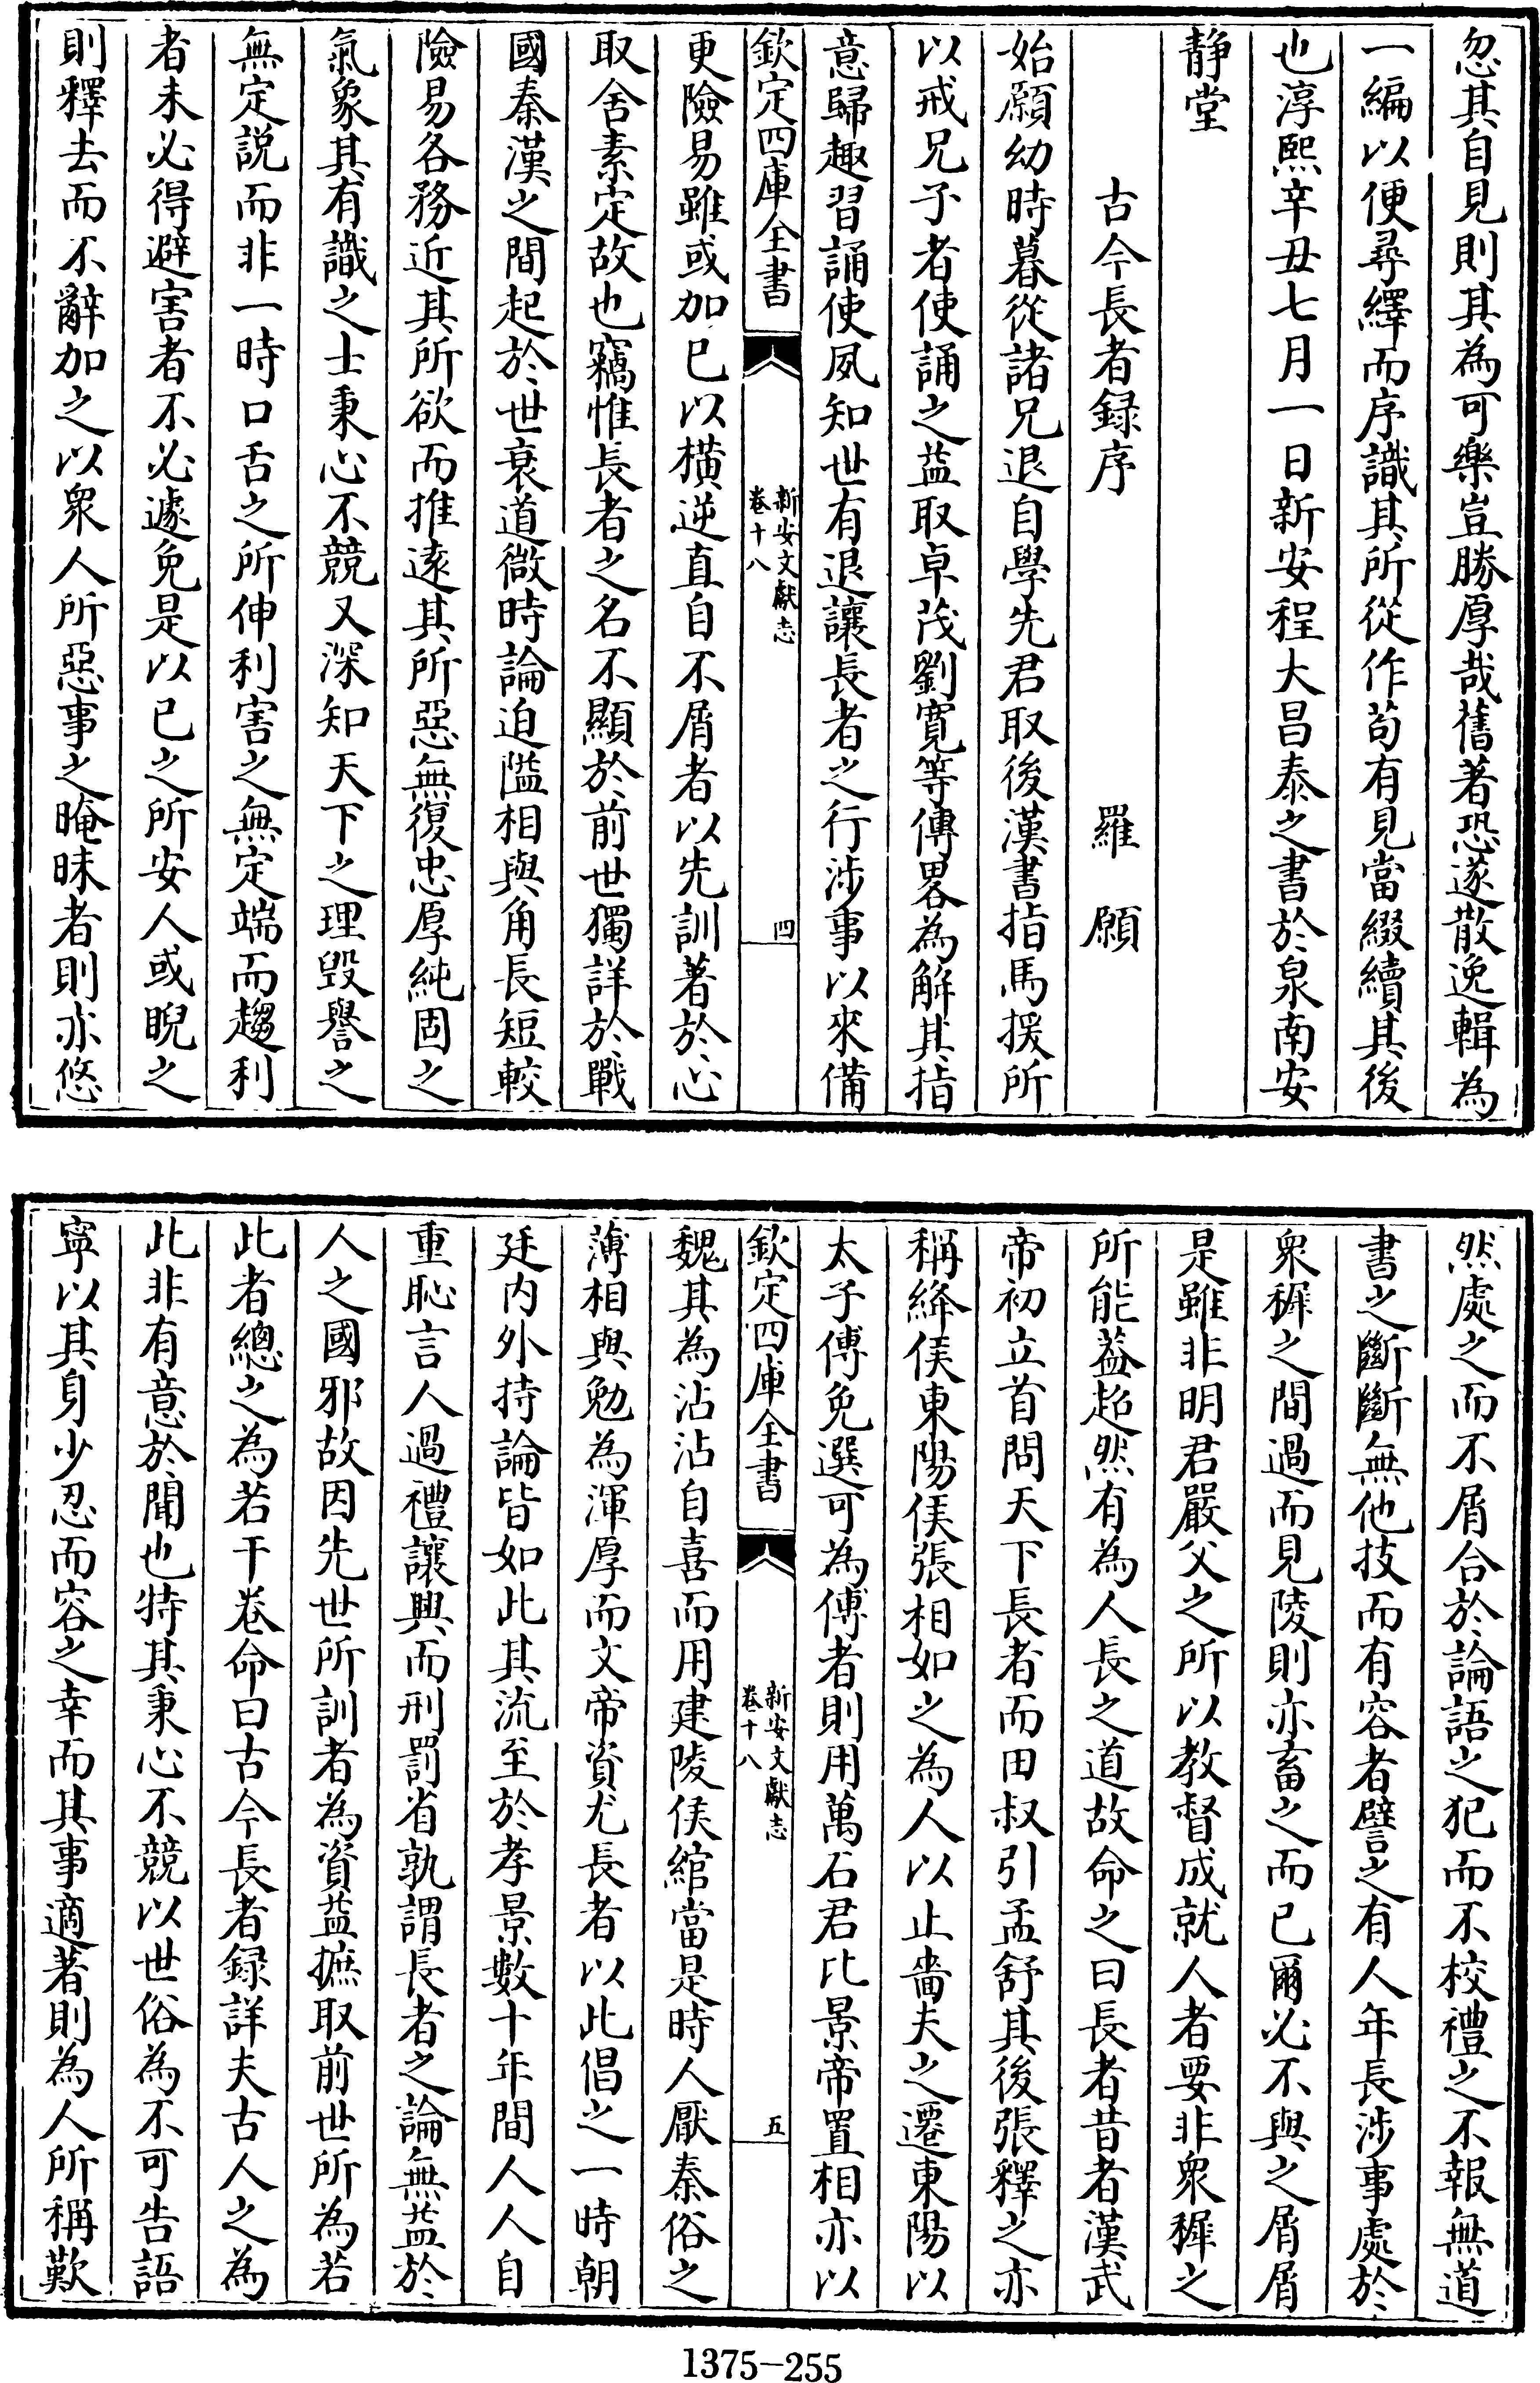 忽其自見則其為可樂豈勝厚哉舊著恐遂散逸輯為
一編以便尋繹而序識其所從作苟有見當綴續其後
也淳熙辛丑七月一日新安程大昌泰之書於泉南安
静堂
古今長者録序　羅願
始願幼時暮從諸兄退自學先君取後漢書指馬援所
以戒兄子者使誦之益取卓茂劉寛等傳畧為解其指
意歸趣習誦使夙知世有退讓長者之行涉事以來備
欽定四庫全書
新安文獻志
卷十八
四
更險易雖或加已以橫逆直自不屑者以先訓著於心
取舍素定故也竊惟長者之名不顯於前世獨詳於戰
國秦漢之間起於世衰道微時論迫隘相與角長短較
險易各務近其所欲而推遠其所惡無復忠厚純固之
氣象其有識之士秉心不競又深知天下之理毁譽之
無定説而非一時口舌之所伸利害之無定端而趨利
者未必得避害者不必遽免是以已之所安人或睨之
則釋去而不辭加之以衆人所惡事之晻昧者則亦悠
然處之而不屑合於論語之犯而不校禮之不報無道
書之斷斷無他技而有容者譬之有人年長涉事處於
衆穉之間過而見陵則亦畜之而已爾必不與之屑屑
是雖非明君嚴父之所以教督成就人者要非衆穉之
所能葢超然有為人長之道故命之曰長者昔者漢武
帝初立首問天下長者而田叔引孟舒其後張釋之亦
稱絳侯東陽侯張相如之為人以止嗇夫之遷東陽以
太子傅免選可為傅者則用萬石君比景帝置相亦以
欽定四庫全書
新安文獻志
卷十八
五
魏其為沾沾自喜而用建陵侯綰當是時人厭秦俗之
薄相與勉為渾厚而文帝資尤長者以此倡之一時朝
廷内外持論皆如此其流至於孝景數十年間人人自
重恥言人過禮讓興而刑罰省孰謂長者之論無益於
人之國邪故因先世所訓者為資益摭取前世所為若
此者總之為若干卷命曰古今長者録詳夫古人之為
此非有意於聞也特其秉心不競以世俗為不可告語
寧以其身少忍而容之幸而其事適著則為人所稱歎
1375-255